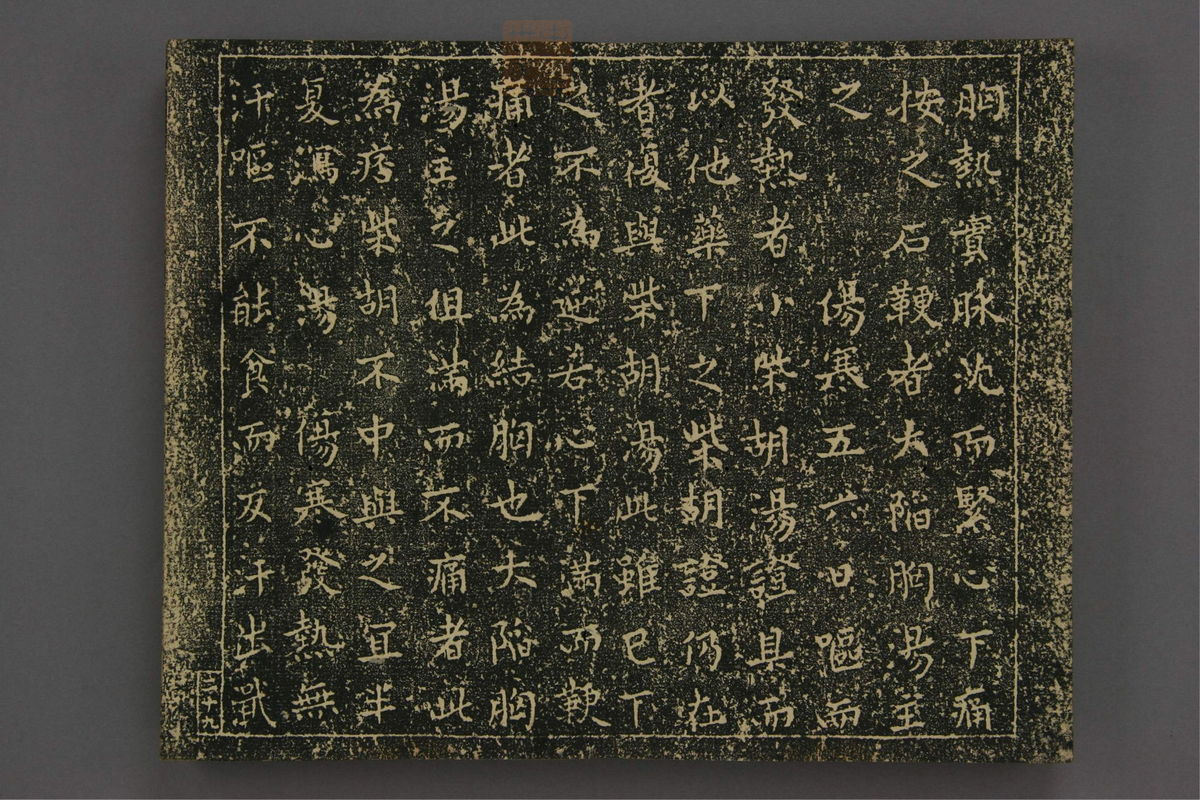 胸熱實脉沈而緊心下痛
按之石鞕者大陷胸湯主
之　傷寒五六日嘔而
發熱者小柴胡湯證具而
以他藥下之柴胡證仍在
者復與柴胡湯此雖已下
之不為逆若心下滿而鞕
痛者此為結胸也大陷胸
湯主之但滿而不痛者此
為痞柴胡不中與之宜半
夏瀉心湯　傷寒發熱無
汗嘔不能食而反汗出濈
二十九